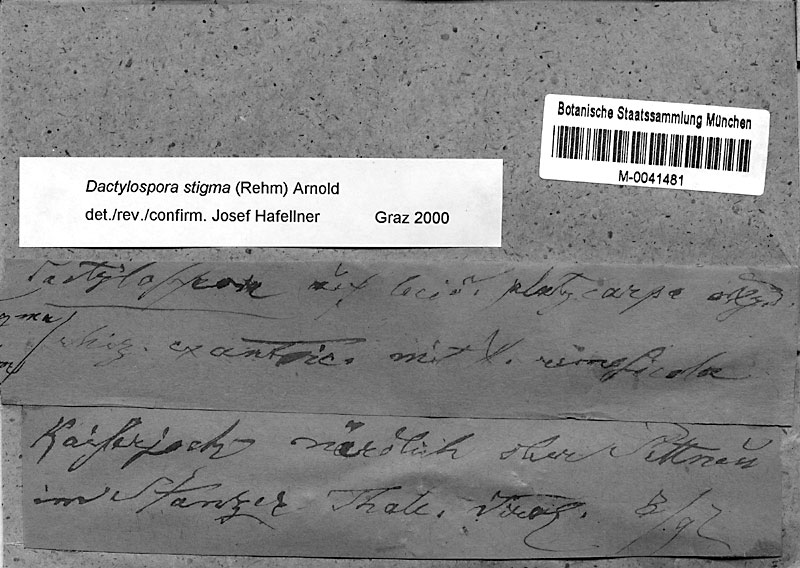 Botanische Staatssammlung München
M-0041481
Dactylospora stigma (Rehm) Arnold
det./rev./confirm. Josef Hafellner Graz 2000
Dactylospora auf lecid. platycarpa
rhiz. exantric. mit
Kaiserjoch nördlich ober Pettneu
im Stanzer Thale, Tirol. 8/92